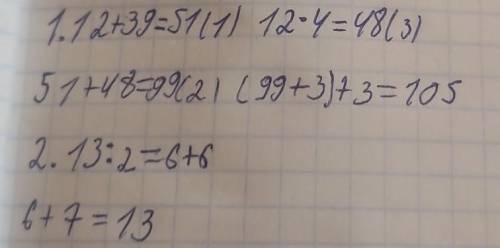 1. 12+39=51(1) 12·4=48(3)
51+48=99(2) (99+3)+3=105
2. 13:2=6+6
6+7=13